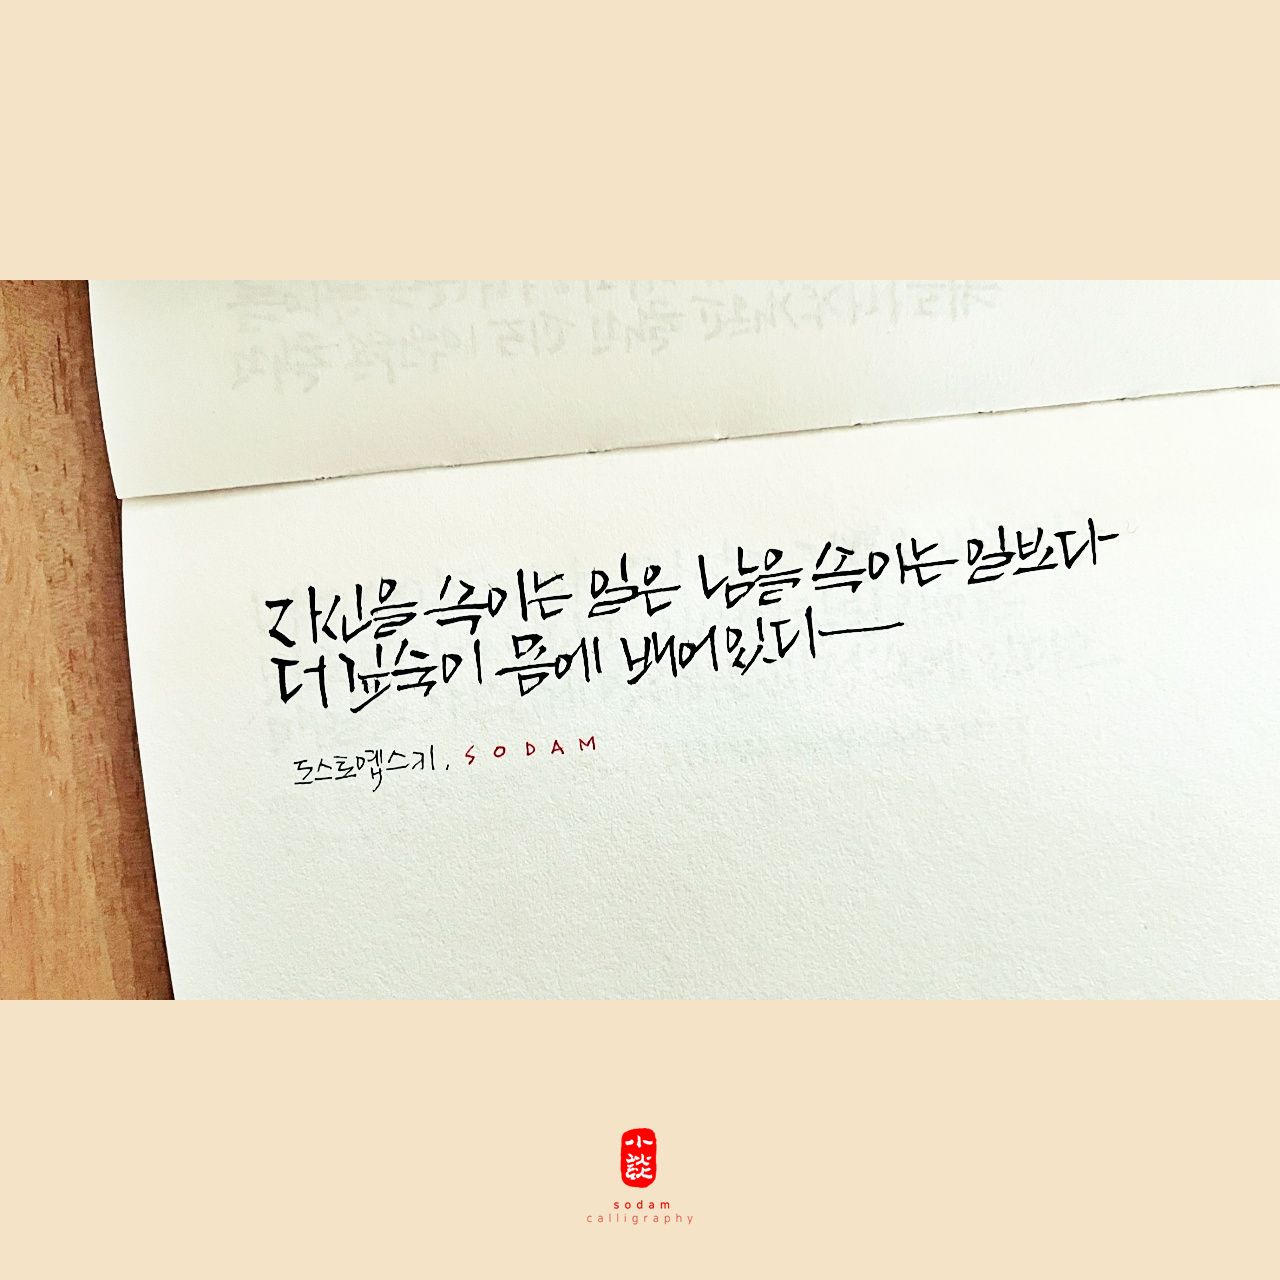 자신을 속이는 일은 남을 속이는 일보다
더 깊숙이 몸에 배어있다
도스토옙스키, SODAM
小談
sodam
calligraphy